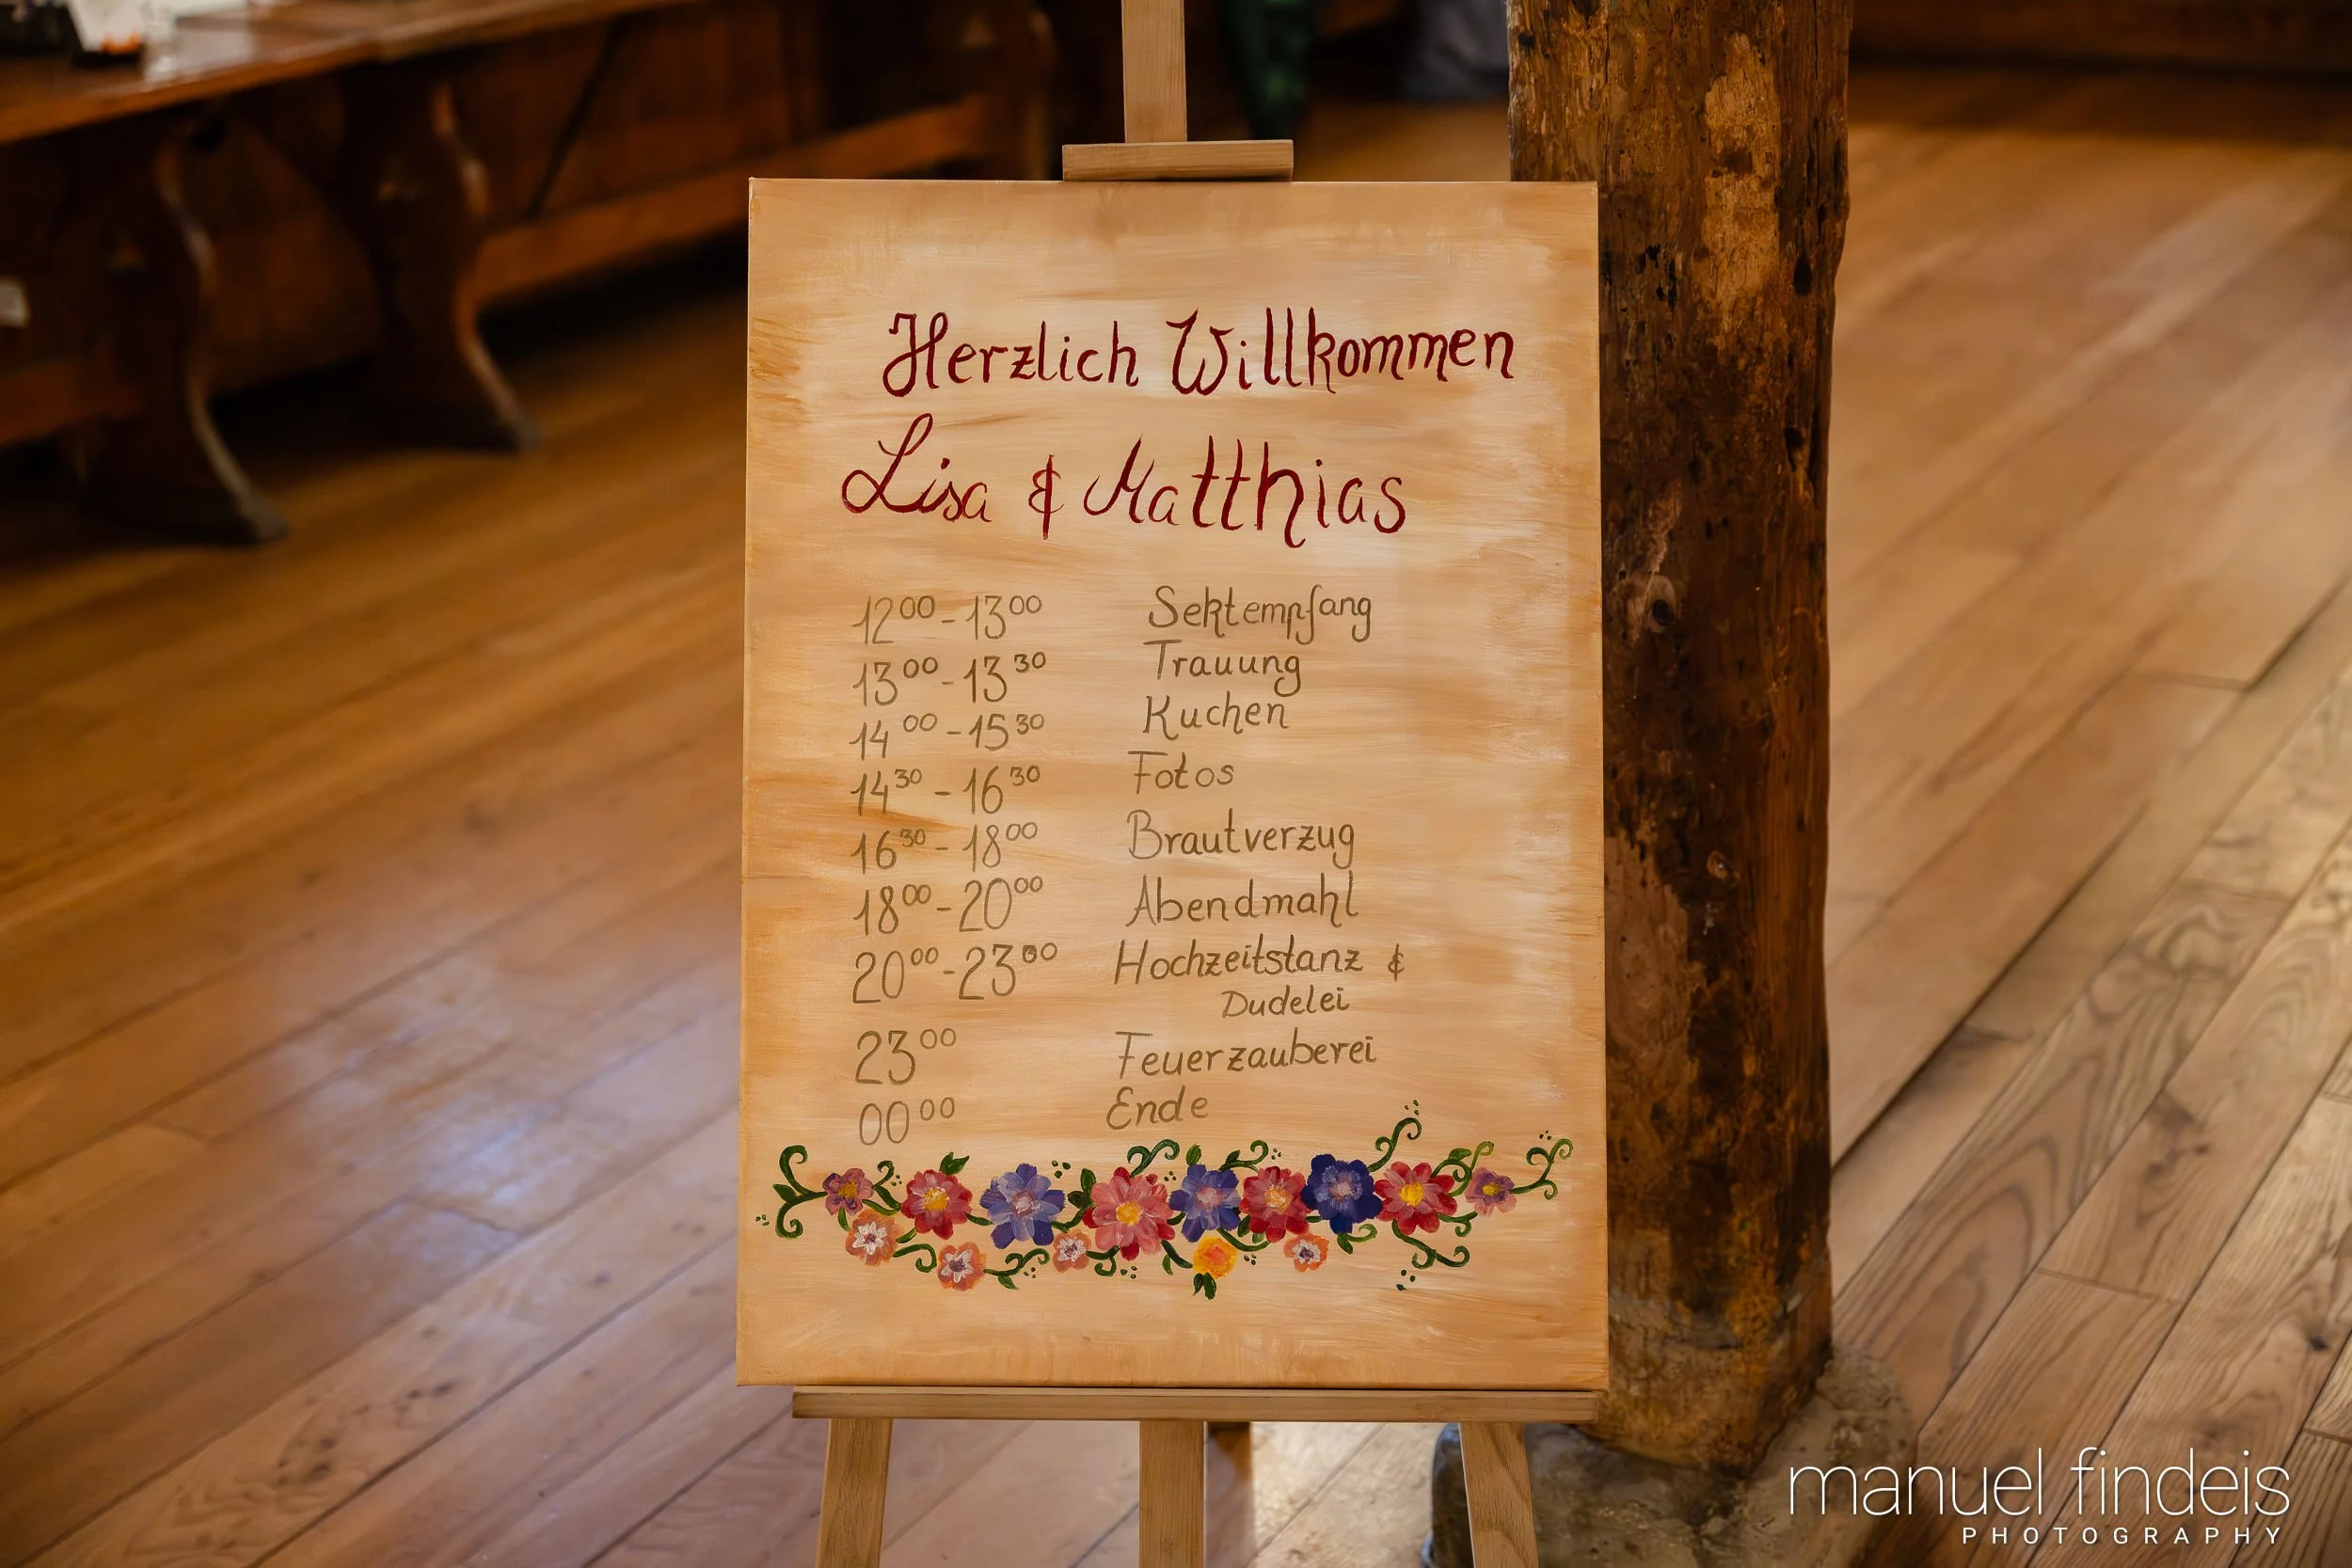 Herzlich Willkommen
Lisa & Matthias
12⁰⁰ - 13⁰⁰ Sektempfang
13⁰⁰ - 13³⁰ Trauung
14⁰⁰ - 15³⁰ Kuchen
14³⁰ - 16³⁰ Fotos
16³⁰ - 18⁰⁰ Brautverzug
18⁰⁰ - 20⁰⁰ Abendmahl
20⁰⁰ - 23⁰⁰ Hochzeitstanz &
Dudelei
23⁰⁰ Feuerzauberei
00⁰⁰ Ende
manuel findeis
PHOTOGRAPHY